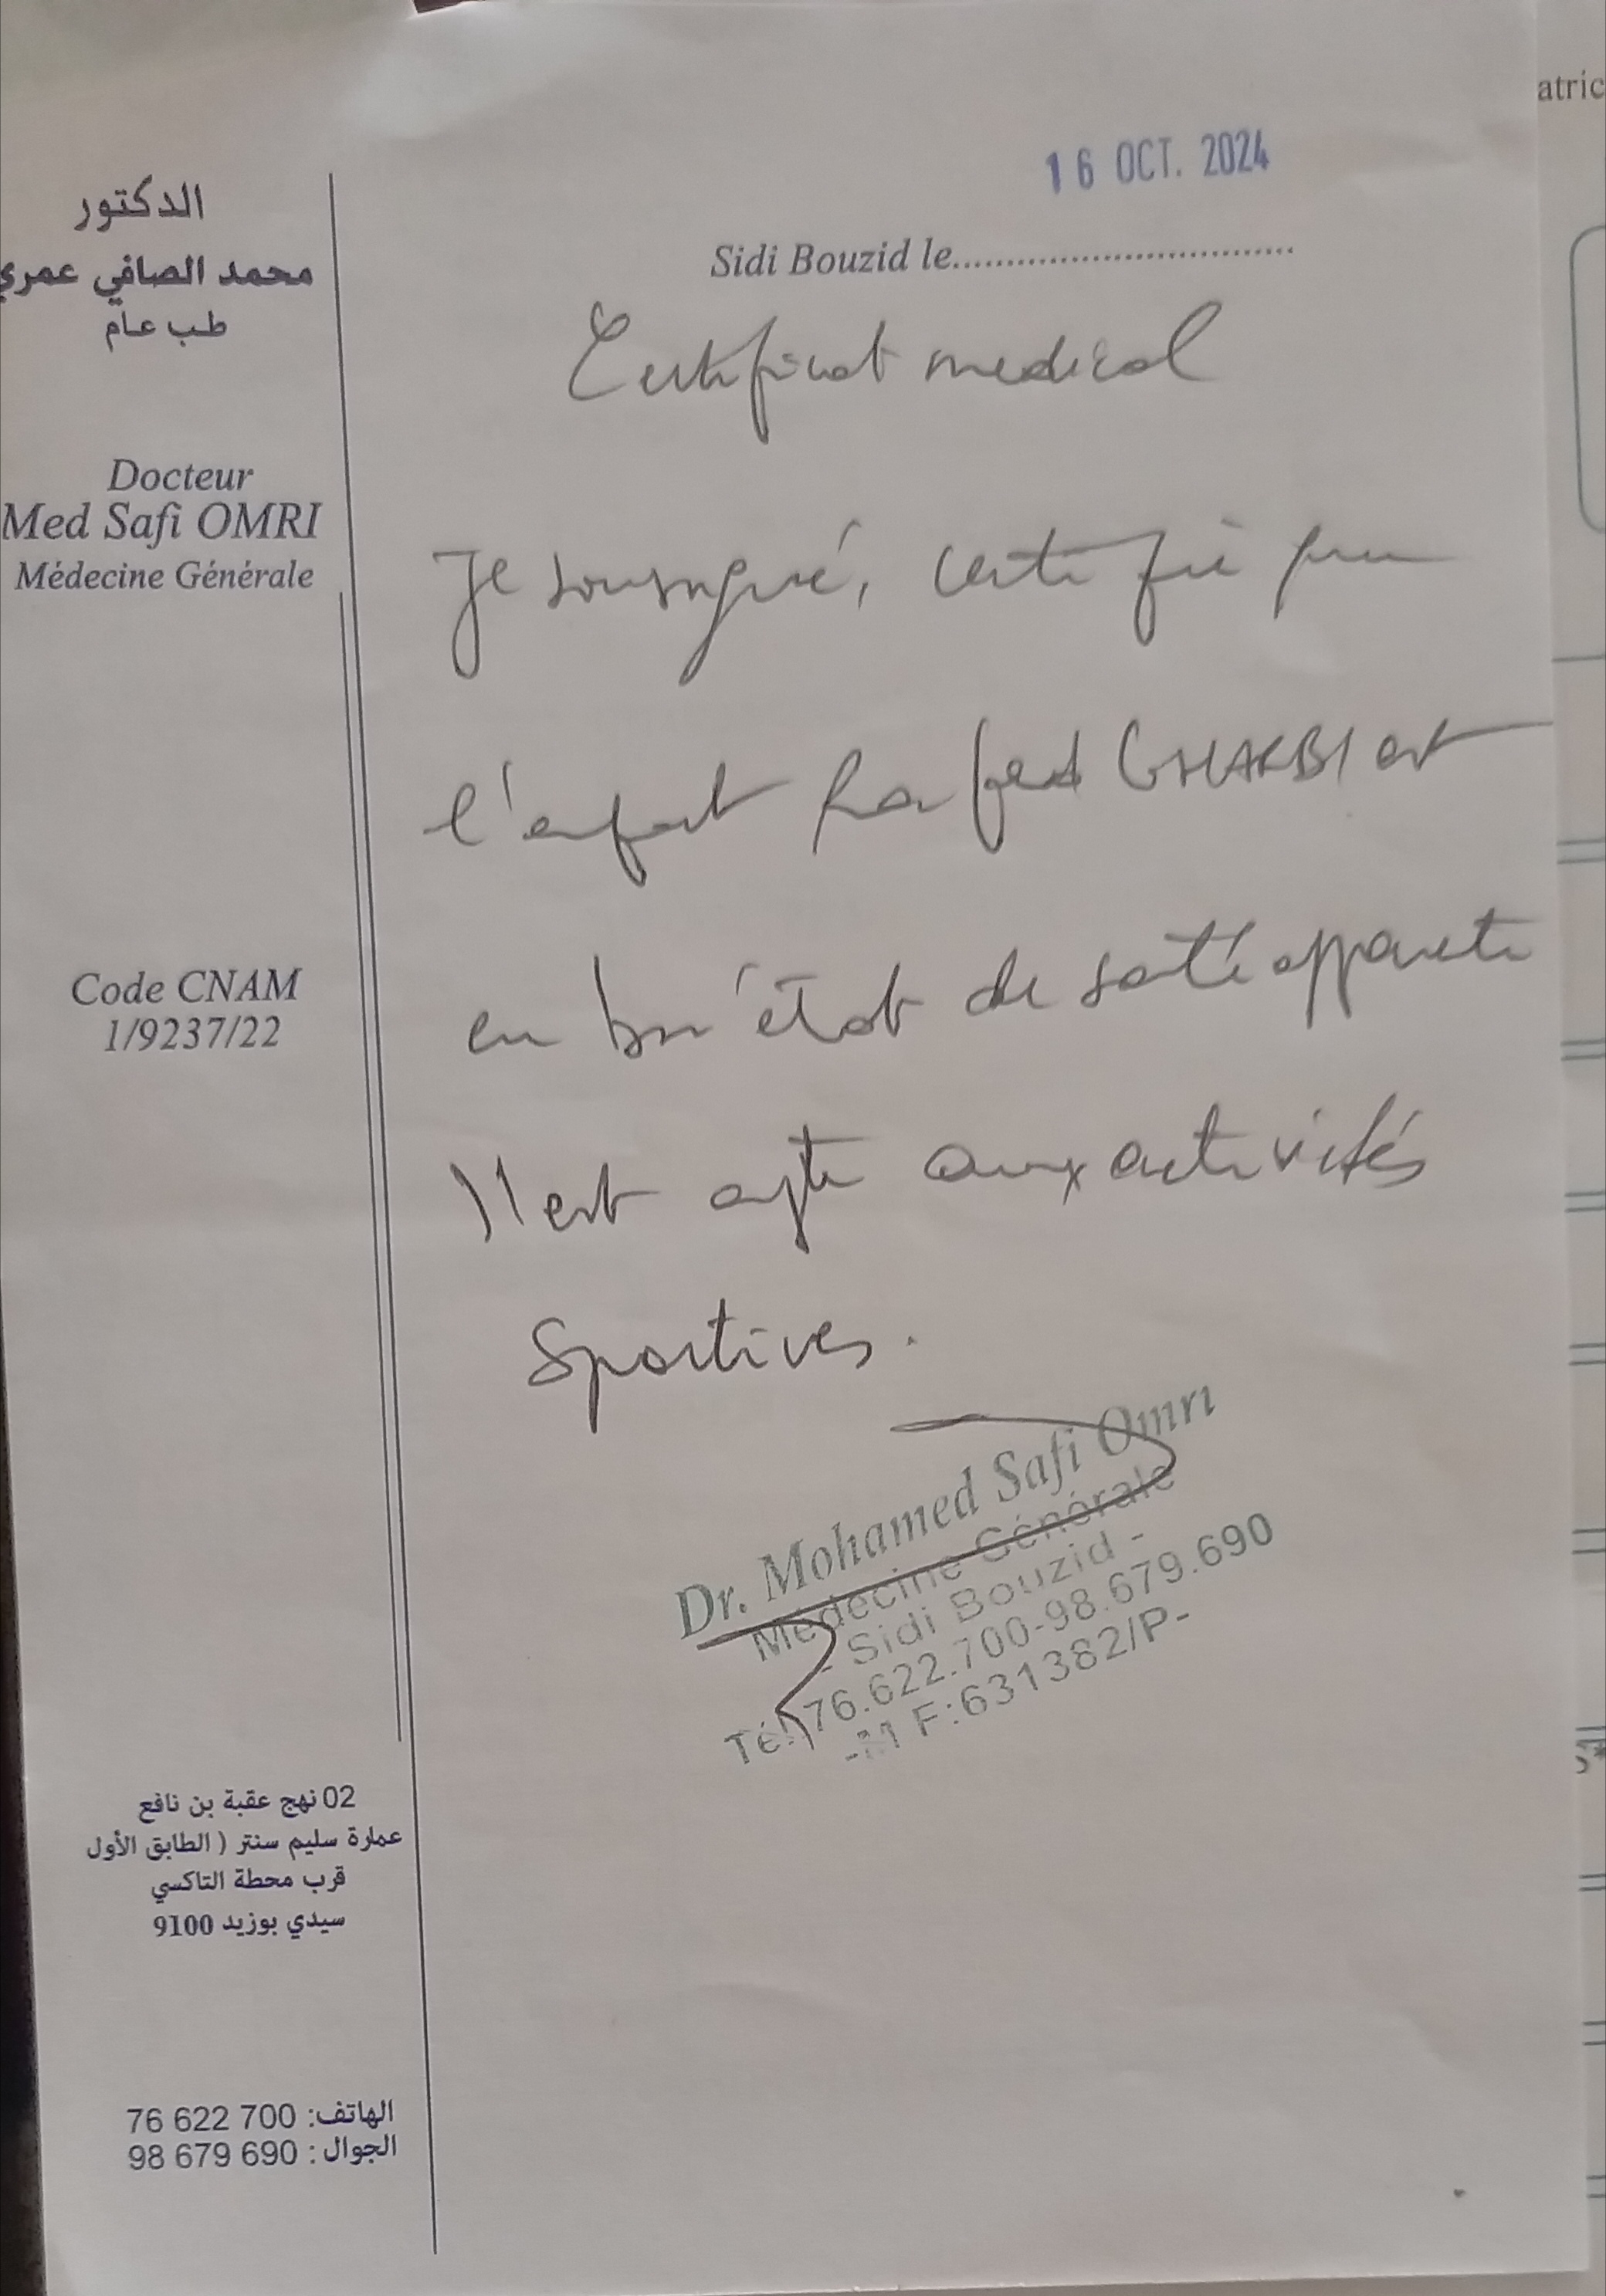 atric
16 OCT. 2024
Sidi Bouzid le
الدكتور
محمد الصافي عمري
طب عام
Docteur
Med Safi OMRI
Médecine Générale
Code CNAM
1/9237/22
Certificat medical
Je soussigné, certifie que
l'enfant GHARBI est
en bon état de santé apparente
Il est apte aux activités
Sportives.
Dr. Mohamed Safi Omri
Médecine Générale
- Sidi Bouzid -
Tél:76.622.700-98.679.690
-M F:631382/P-
02 نهج عقبة بن نافع
عمارة سليم سنتر ( الطابق الأول
قرب محطة التاكسي
سيدي بوزيد 9100
الهاتف: 700 622 76
الجوال : 690 679 98